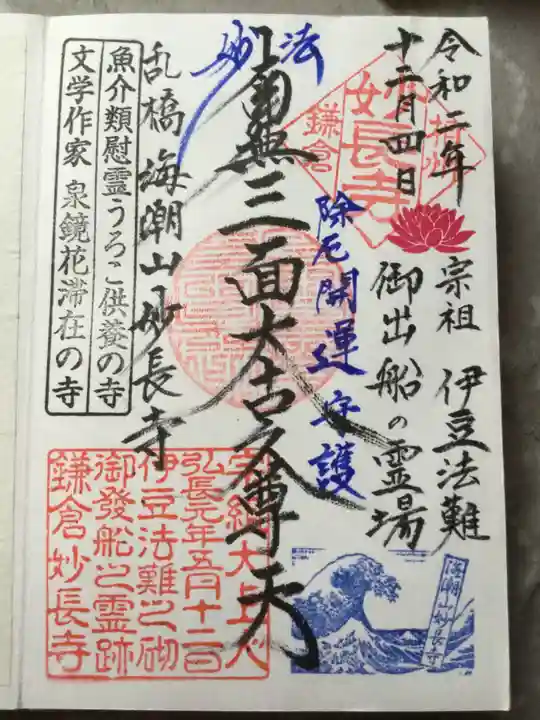 令和二年
十二月四日
妙長寺
鎌倉
宗祖 伊豆法難
御出船の霊場
除厄開運守護
妙法
南無三面大古久尊天
乱橋 海潮山 妙長寺
魚介類慰霊うろこ供養の寺
文学作家 泉鏡花滞在の寺
弘長元年五月十二日
伊豆法難之砌
御發船之霊跡
鎌倉妙長寺
海潮山妙長寺